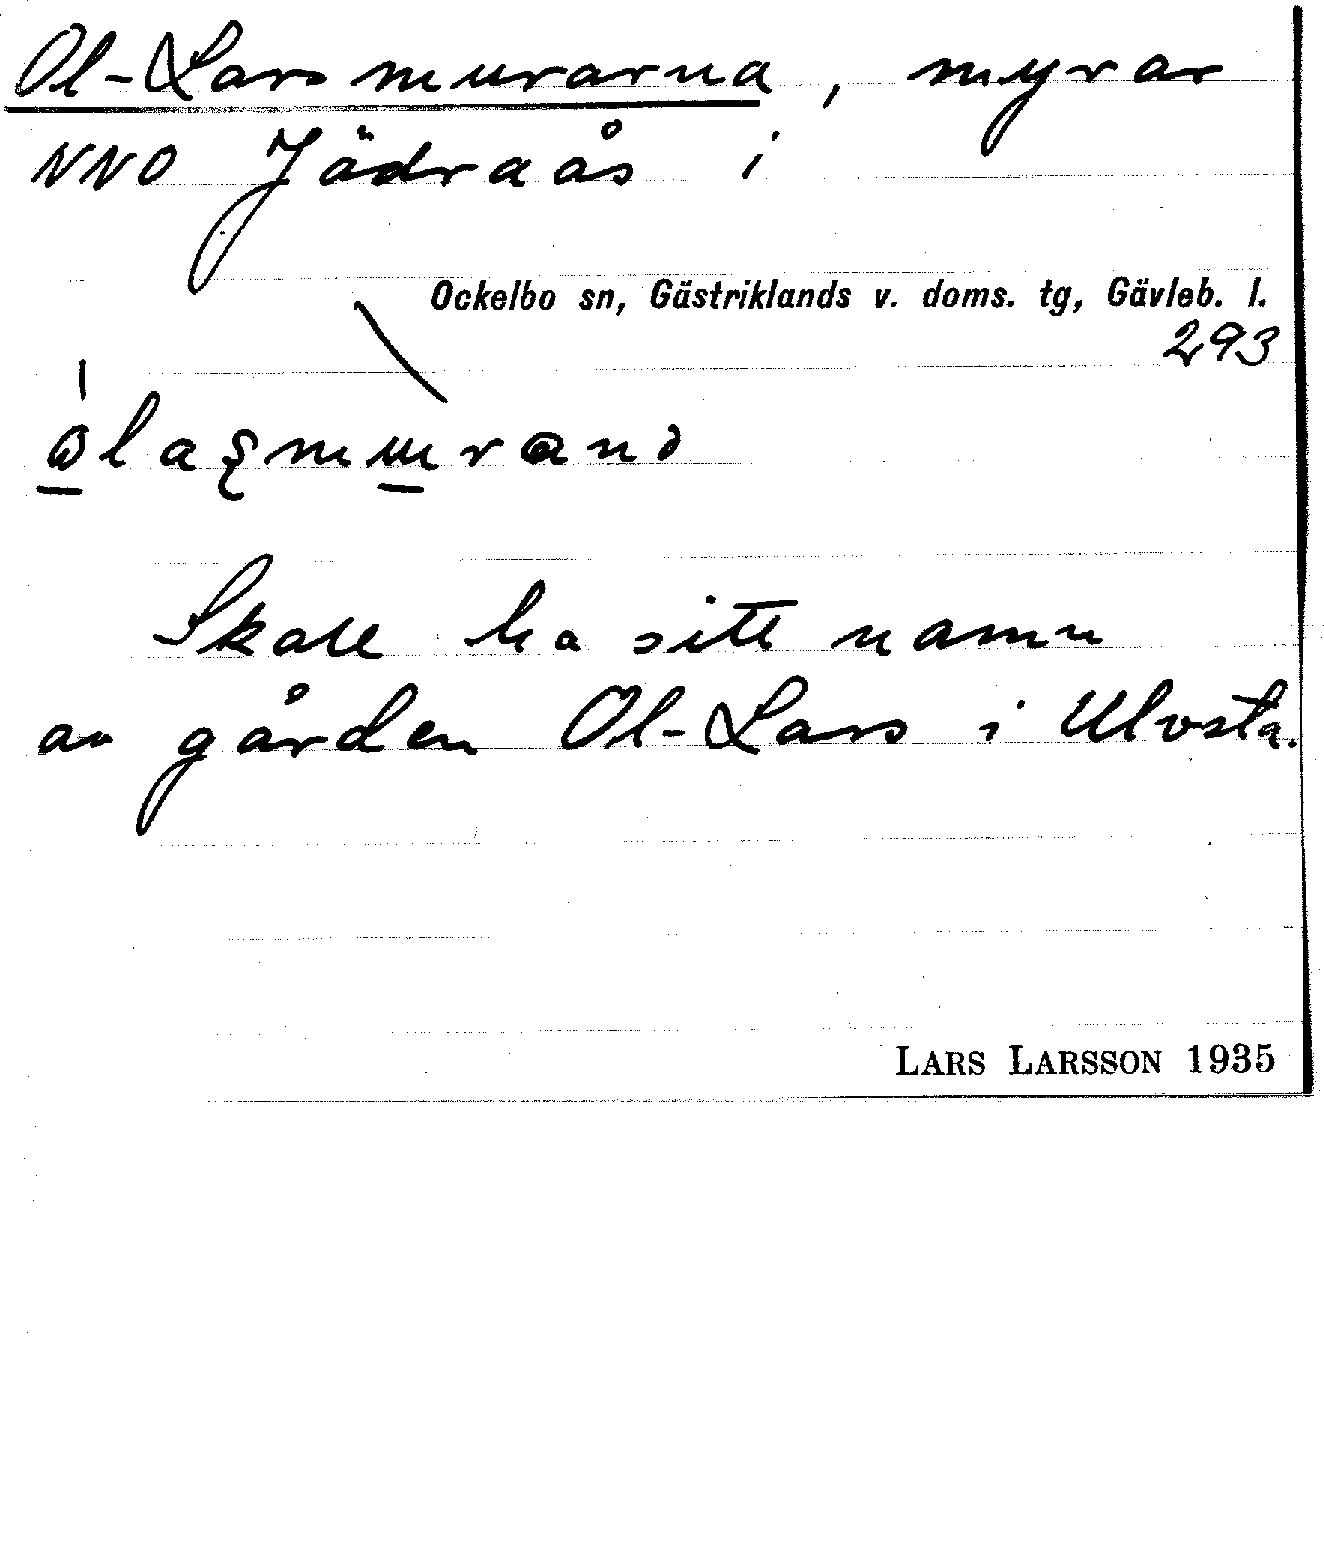 Ol-Larsmurarna, myrar
NNO Jädraås i
Ockelbo sn, Gästriklands v. doms. tg, Gävleb. l.
293
Skall ha sitt namn
av gården Ol-Lars i Ulvsta.
LARS LARSSON 1935